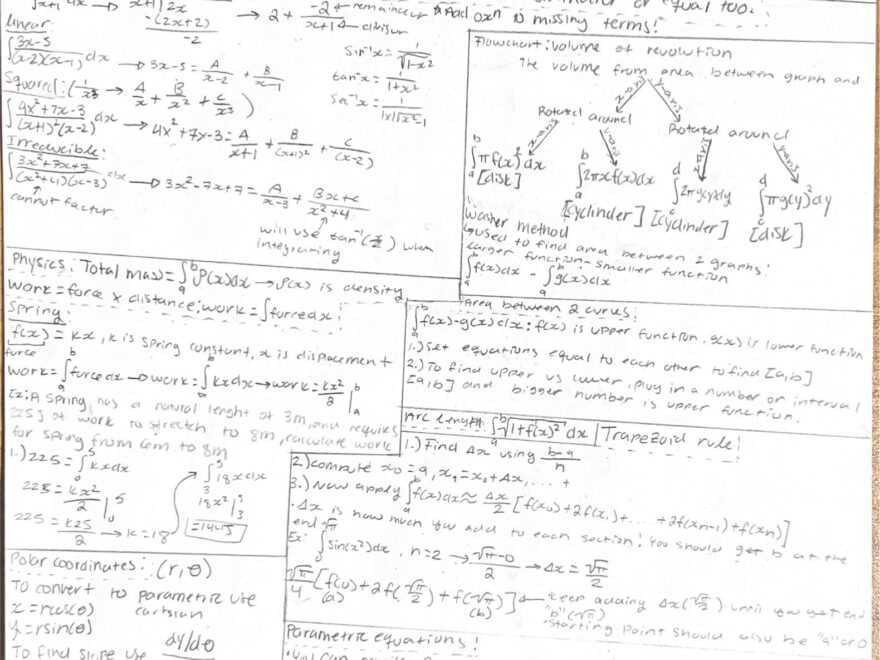 x+1 | 2x → 2 + -2/x+1 ← remainder ← divisor
-(2x+2)
-2
missing terms!
equal too.
linear:
∫ 3x-5/(x-2)(x-1) dx → 3x-5 = A/x-2 + B/x-1
Squared: (1/x³ → A/x + B/x² + C/x³)
∫ 4x²+7x-3/(x+1)²(x-2) dx → 4x²+7x-3 = A/x+1 + B/(x+1)² + C/(x-2)
Irreducible:
∫ 3x²-7x+7/(x²+4)(x-3) dx → 3x²-7x+7 = A/x-3 + Bx+C/x²+4
cannot factor
will use tan⁻¹(x/2) when
integrating
Sin⁻¹x = 1/√1-x²
tan⁻¹x = 1/1+x²
Sec⁻¹x = 1/|x|√x²-1
Flowchart: Volume of revolution
The volume from area between graph and
x-axis
y-axis
Rotated around
Rotated around
x-axis
y-axis
x-axis
y-axis
∫ᵇₐ πf(x)² dx
[disk]
∫ᵇₐ 2πxf(x)dx
[cyclinder]
∫ᵈ꜀ 2πg(y)dy
[cyclinder]
∫ᵈ꜀ πg(y)² dy
[disk]
Washer method
used to find area between 2 graphs:
larger function - smaller function
∫ᵇₐ f(x)dx - ∫ᵇₐ g(x)dx
Physics: Total mass = ∫ᵇₐ ρ(x)dx → ρ(x) is density
work = force x distance; work = ∫force dx!
Spring:
f(x) = kx, k is spring constant, x is displacement
force
work = ∫ᵇₐ force dx → work = ∫ᵇₐ kx dx → work = kx²/2 |ᵇₐ
Ex: A spring has a natural lenght of 3m, and requires
225J of work to stretch to 8m, calculate work
for spring from 6m to 8m
1.) 225 = ∫⁵₀ kx dx
225 = kx²/2 |⁵₀
225 = k25/2 → k = 18
∫⁵₃ 18x dx
18x²|⁵₃
=144J
Area between 2 curves:
∫ᵇₐ f(x)-g(x) dx: f(x) is upper function, g(x) is lower function
1.) Set equations equal to each other to find [a,b]
2.) To find upper vs lower, plug in a number on interval
[a,b] and bigger number is upper function.
Arc length: ∫ᵇₐ √1+f(x)² dx | Trapezoid rule!
1.) Find Δx using b-a/n
2.) compute x₀ = a, x₁ = x₀ + Δx, ... +
3.) Now apply ∫ᵇₐ f(x)dx ≈ Δx/2 [f(x₀)+2f(x₁)+ .... +2f(xn-1)+f(xn)]
·Δx is how much you add to each section! You should get b at the
end
Ex: ∫ sin(x²)dx, n=2 → √π-0/2 → Δx = √π/2
√π/4 [f(0)+2f(√π/2)+f(√π)] ← keep adding Δx(√π/2) until you get end
(a) (b) "b" (√π)
·Starting point should also be "a" or 0
Polar coordinates: (r,θ)
To convert to parametric use
cartsian
x = rcos(θ)
y = rsin(θ)
To find slope use dy/dθ
Parametric equations!